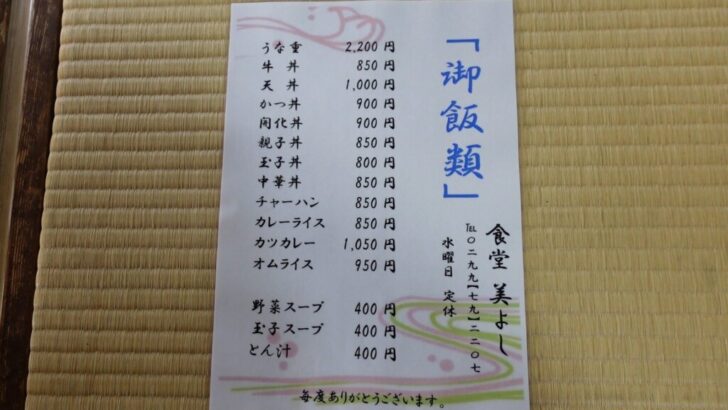 「御飯類」
うな重 2,200円
牛丼 850円
天丼 1,000円
かつ丼 900円
開化丼 900円
親子丼 850円
玉子丼 800円
中華丼 850円
チャーハン 850円
カレーライス 850円
カツカレー 1,050円
オムライス 950円
野菜スープ 400円
玉子スープ 400円
とん汁 400円
食堂 美よし
℡〇二九九【七九】二二〇七
水曜日 定休
毎度ありがとうございます。